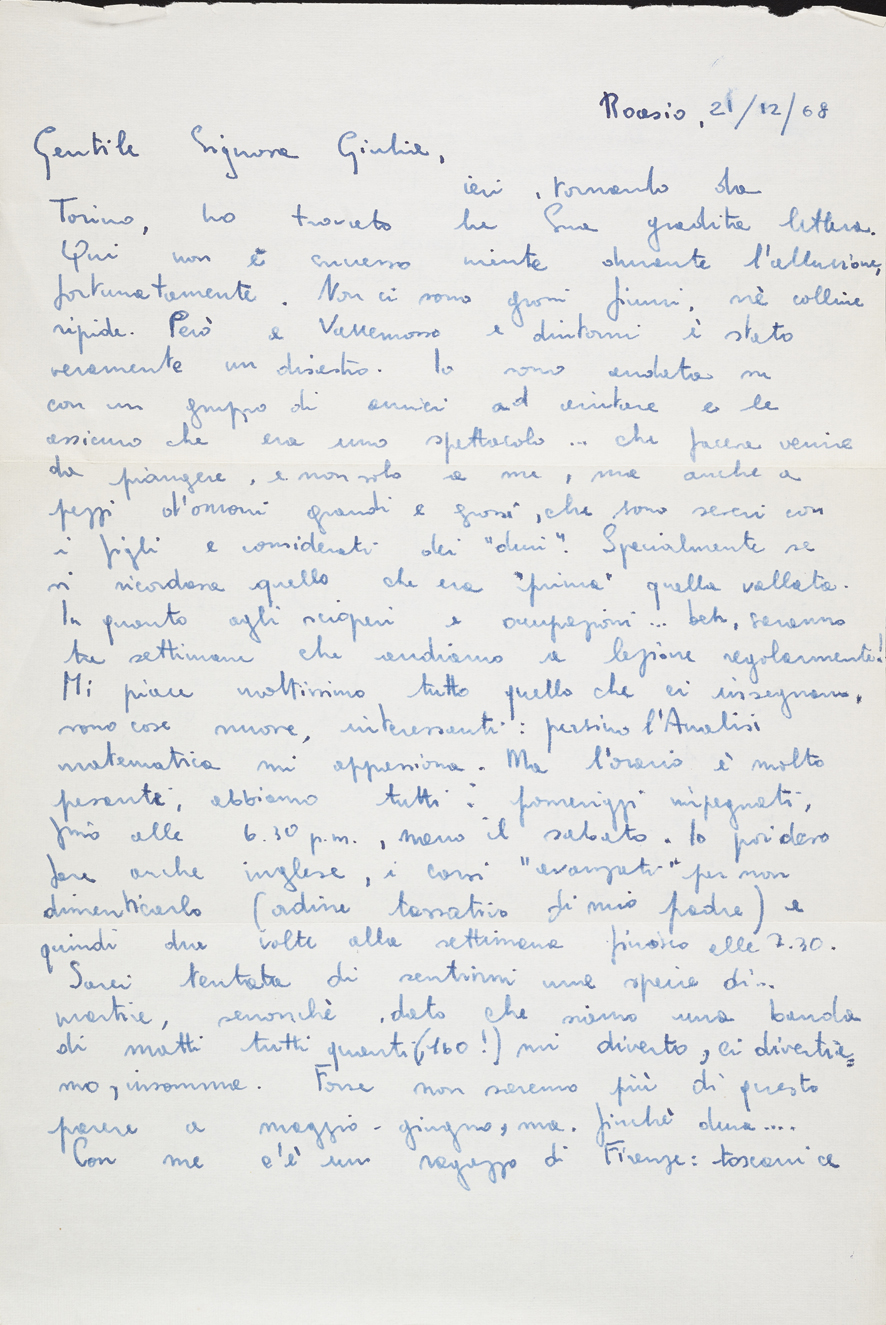 Roasio, 21/12/68
Gentile Signora Giulia,
ieri, tornando da
Torino, ho trovato la Sua gradita lettera.
Qui non è successo niente durante l'alluvione,
fortunatamente. Non ci sono grossi fiumi, nè colline
ripide. Però a Vallemosso e dintorni è stato
veramente un disastro. Io sono andata su
con un gruppo di amici ad aiutare e le
assicuro che era uno spettacolo... che faceva venire
da piangere, e non solo a me, ma anche a
pezzi d'omoni grandi e grossi, che sono severi con
i figli e considerati dei "duri". Specialmente se
si ricordava quello che era "prima" quella vallata.
In quanto agli scioperi e occupazioni... beh, saranno
tre settimane che andiamo a lezione regolarmente!!
Mi piace moltissimo tutto quello che ci insegnano,
sono cose nuove, interessanti: persino l'Analisi
matematica mi appassiona. Ma l'orario è molto
pesante, abbiamo tutti i pomeriggi impegnati,
fino alle 6.30 p.m., meno il sabato. Io poi devo
fare anche inglese, i corsi "avanzati" per non
dimenticarlo (ordine tassativo di mio padre) e
quindi due volte alla settimana finisco alle 7.30.
Sarei tentata di sentirmi una specie di...
martire, senonchè, dato che siamo una banda
di matti tutti quanti (160!) mi diverto, ci divertia=
mo, insomma. Forse non saremo più di questo
parere a maggio-giugno, ma. finchè dura....
Con me c'è un ragazzo di Firenze: toscani ce